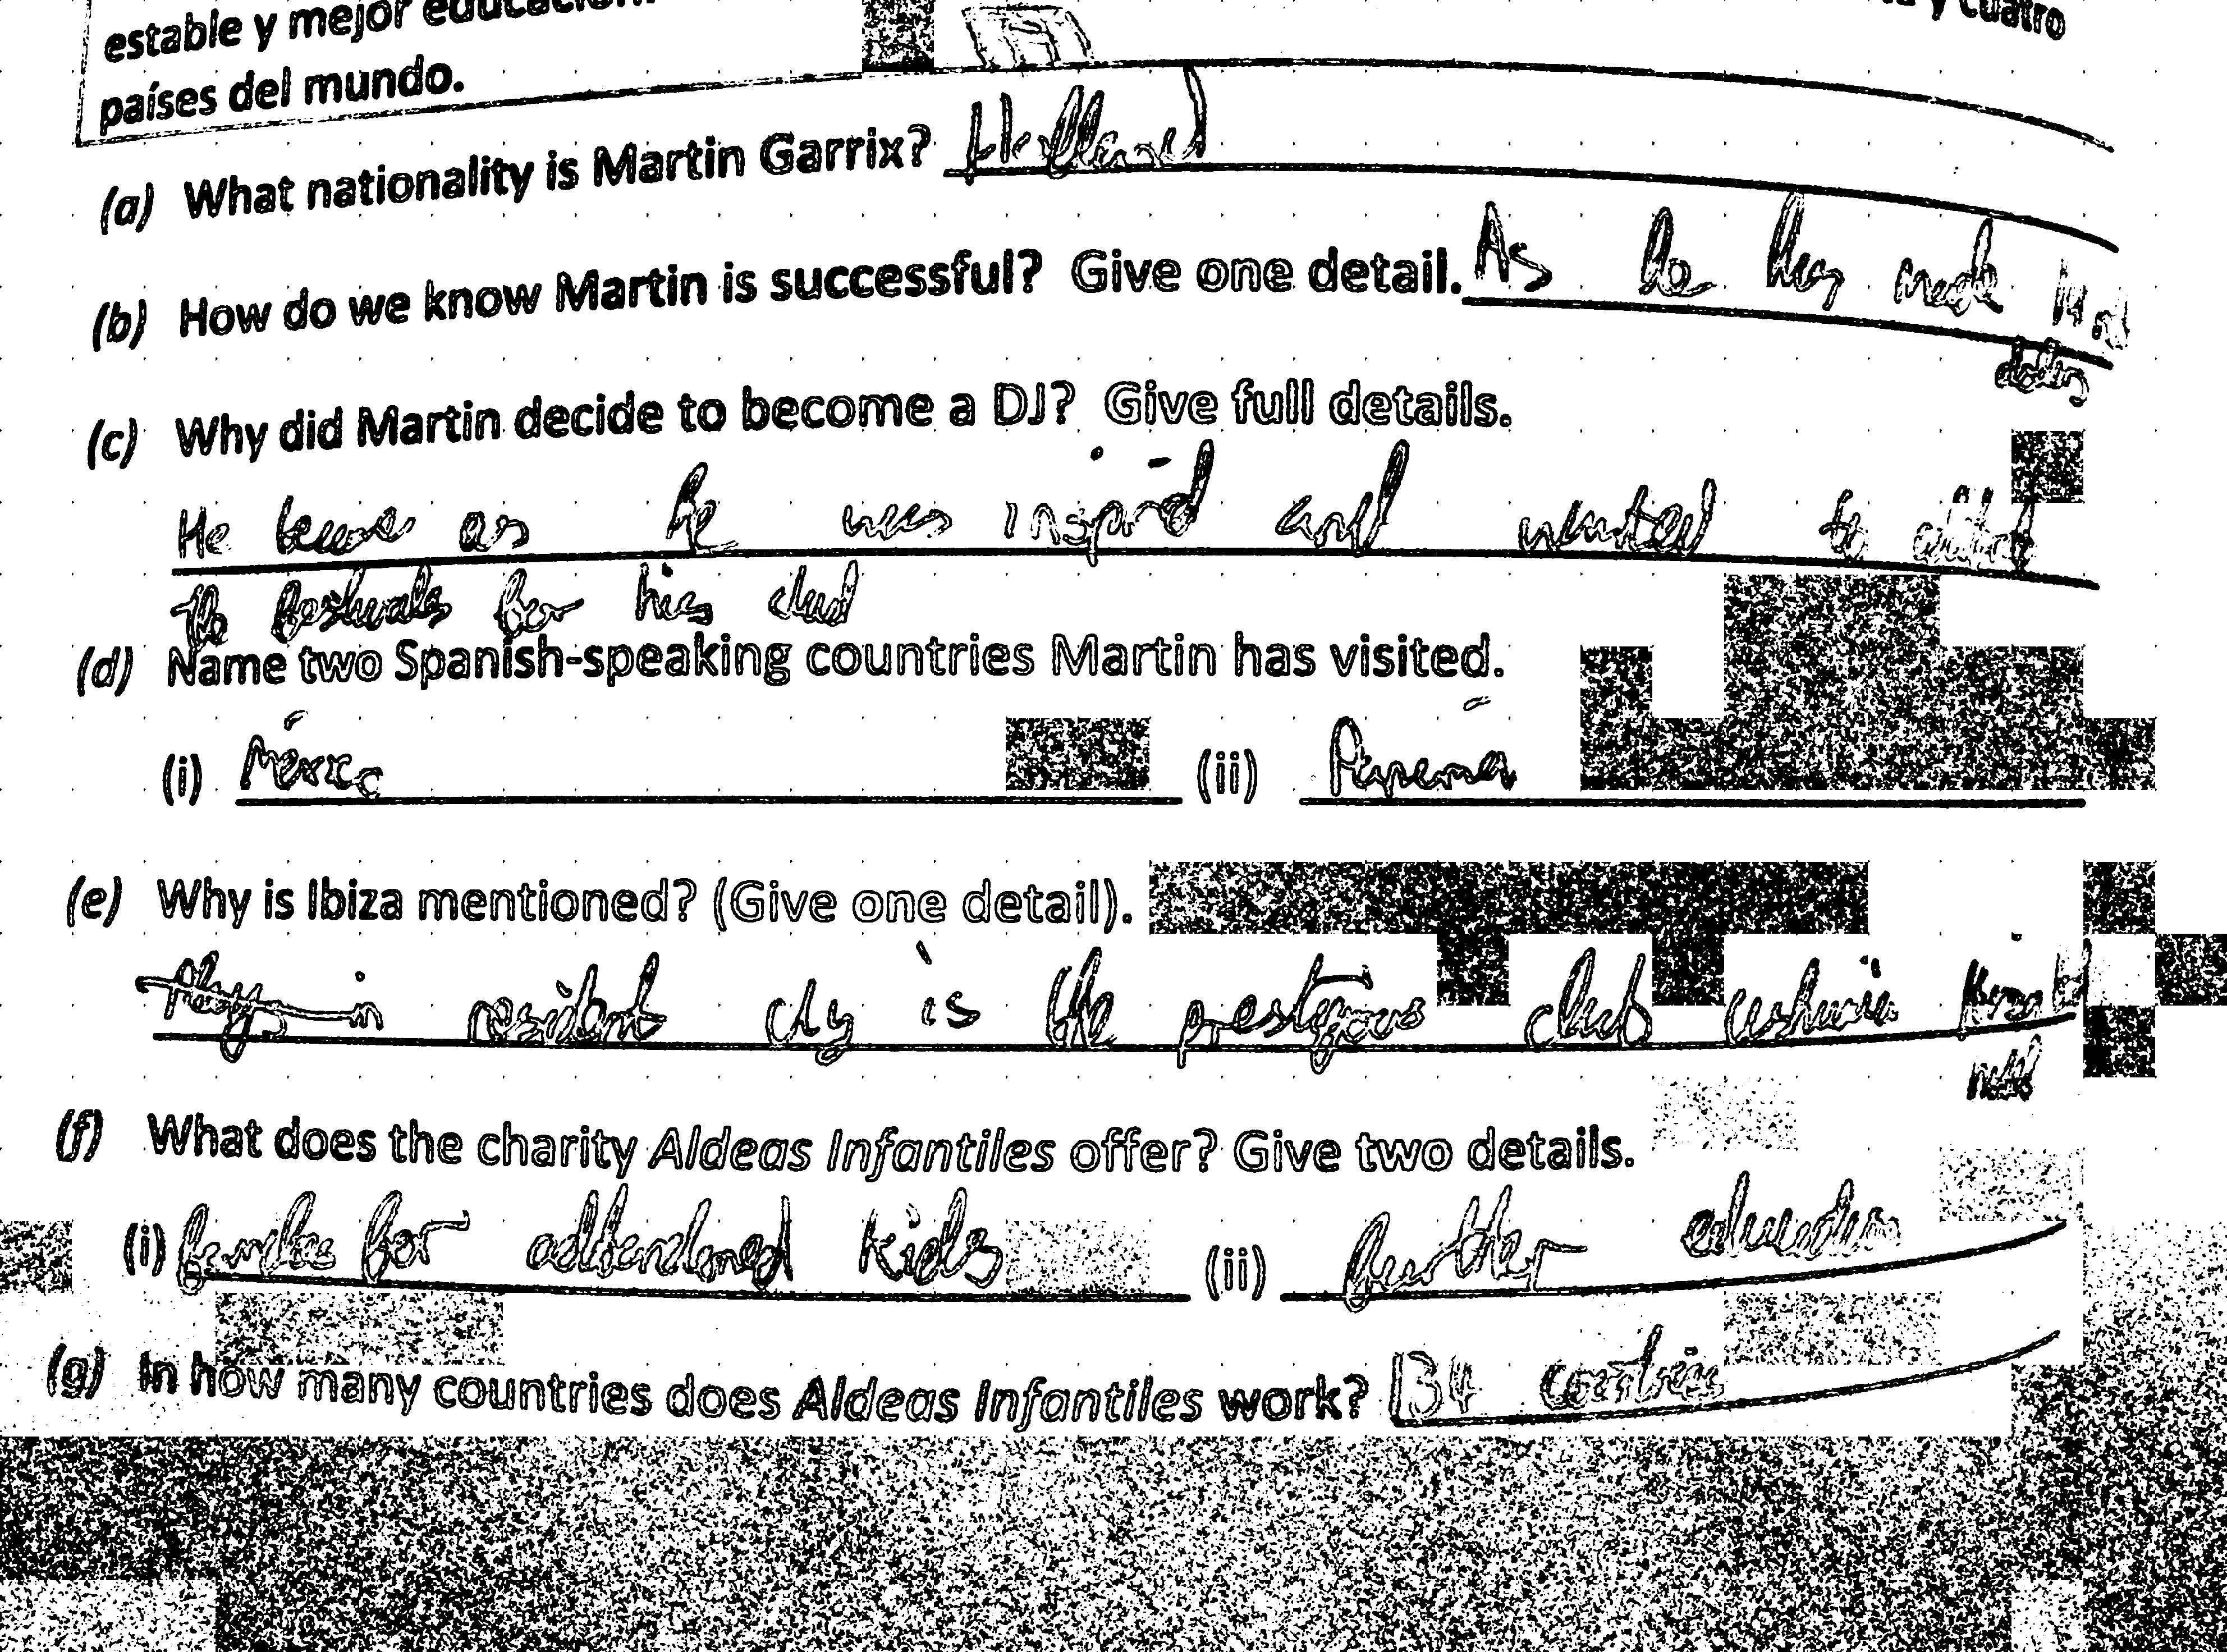 estable y mejor
y cuatro
países del mundo.
(a) What nationality is Martin Garrix? Holland
(b) How do we know Martin is successful? Give one detail. As he has made
(c) Why did Martin decide to become a DJ? Give full details.
He as he was inspird and wanted to
the festivals for his
(d) Name two Spanish-speaking countries Martin has visited.
(i) México (ii) Panamá
(e) Why is Ibiza mentioned? (Give one detail).
in resident cty is the prestigous club ushuaia
(f) What does the charity Aldeas Infantiles offer? Give two details.
(i) for kids (ii) further education
(g) In how many countries does Aldeas Infantiles work? 134 countries